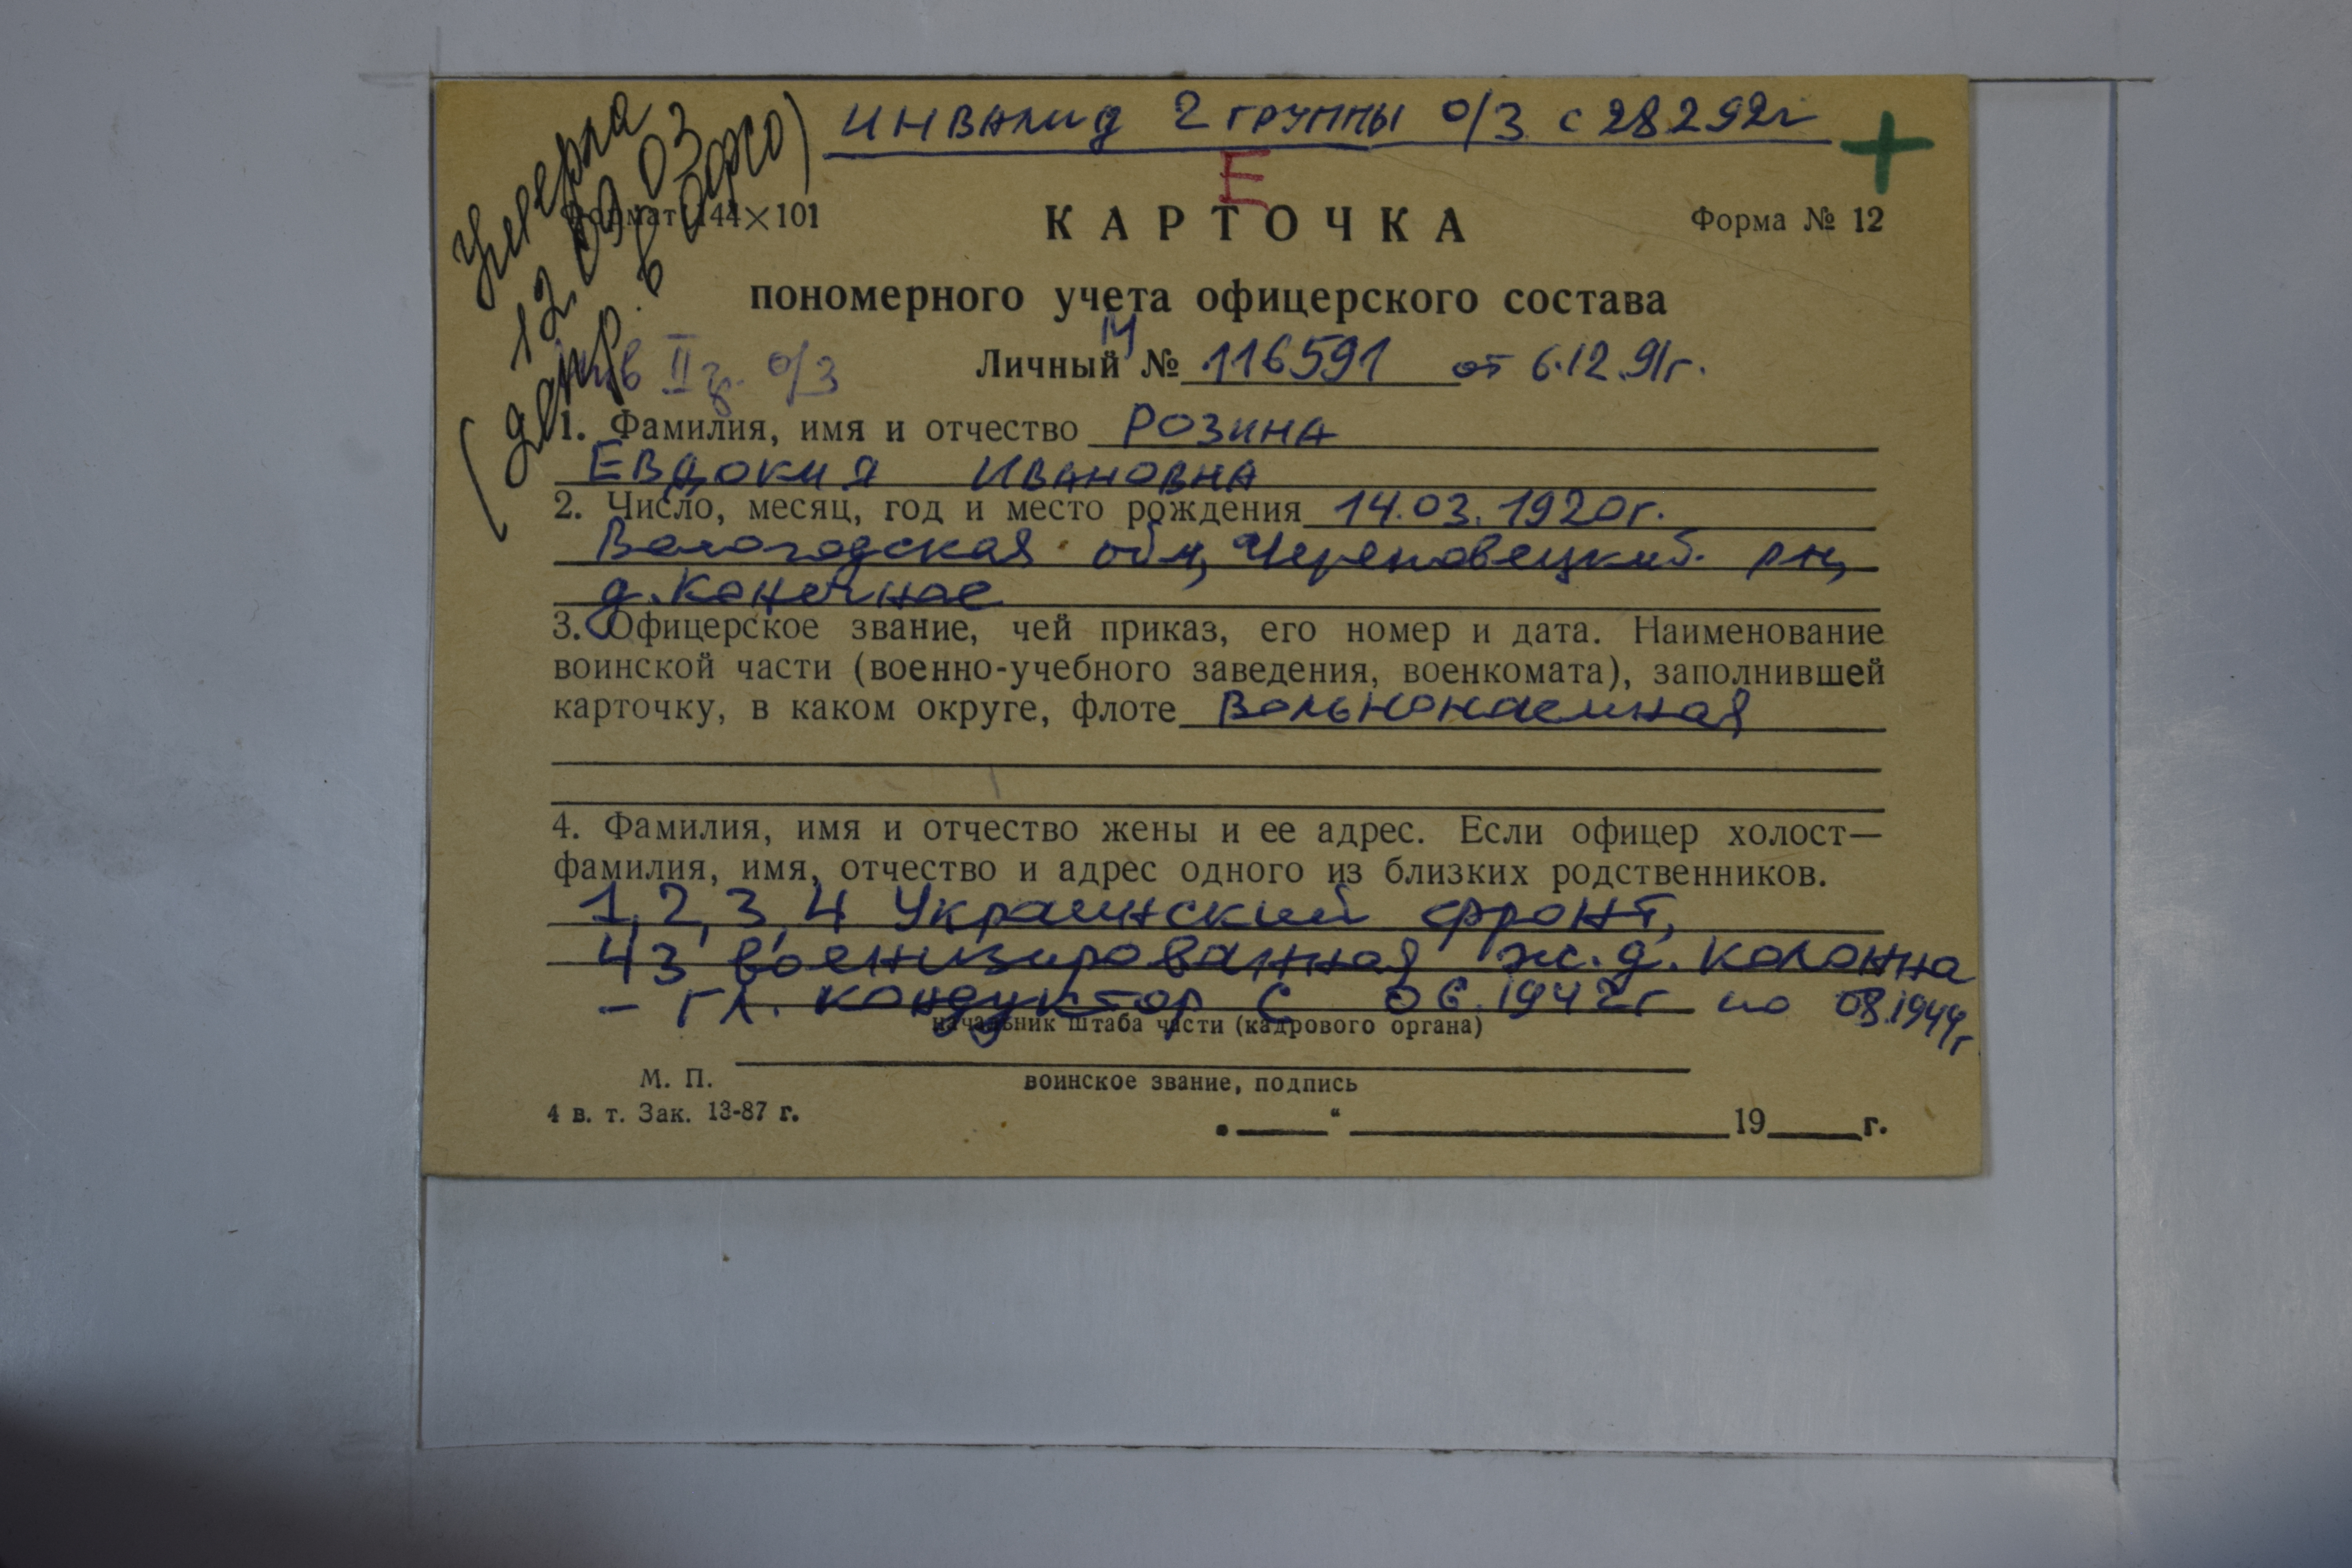 инвалид 2 группы о/з с 28292г
Е
Умерла
12.09.03
Формат 144×101
КАРТОЧКА
Форма № 12
пономерного учета офицерского состава
инв II гр. о/з
Личный № 116591 от 6.12.91г.
1. Фамилия, имя и отчество РОЗИНА
ЕВДОКИЯ ИВАНОВНА
2. Число, месяц, год и место рождения 14.03.1920г.
Вологодская обл, Череповецкий рн,
д. Конечное
3. Офицерское звание, чей приказ, его номер и дата. Наименование
воинской части (военно-учебного заведения, военкомата), заполнившей
карточку, в каком округе, флоте Вольнонаемная
4. Фамилия, имя и отчество жены и ее адрес. Если офицер холост—
фамилия, имя, отчество и адрес одного из близких родственников.
1, 2, 3, 4 Украинский фронт,
43 военизированная ж.д. колонна
- гл. кондуктор с 06.1942г по 08.1944г
начальник штаба части (кадрового органа)
М. П.
воинское звание, подпись
4 в. т. Зак. 13-87 г.
„ “ 19 г.